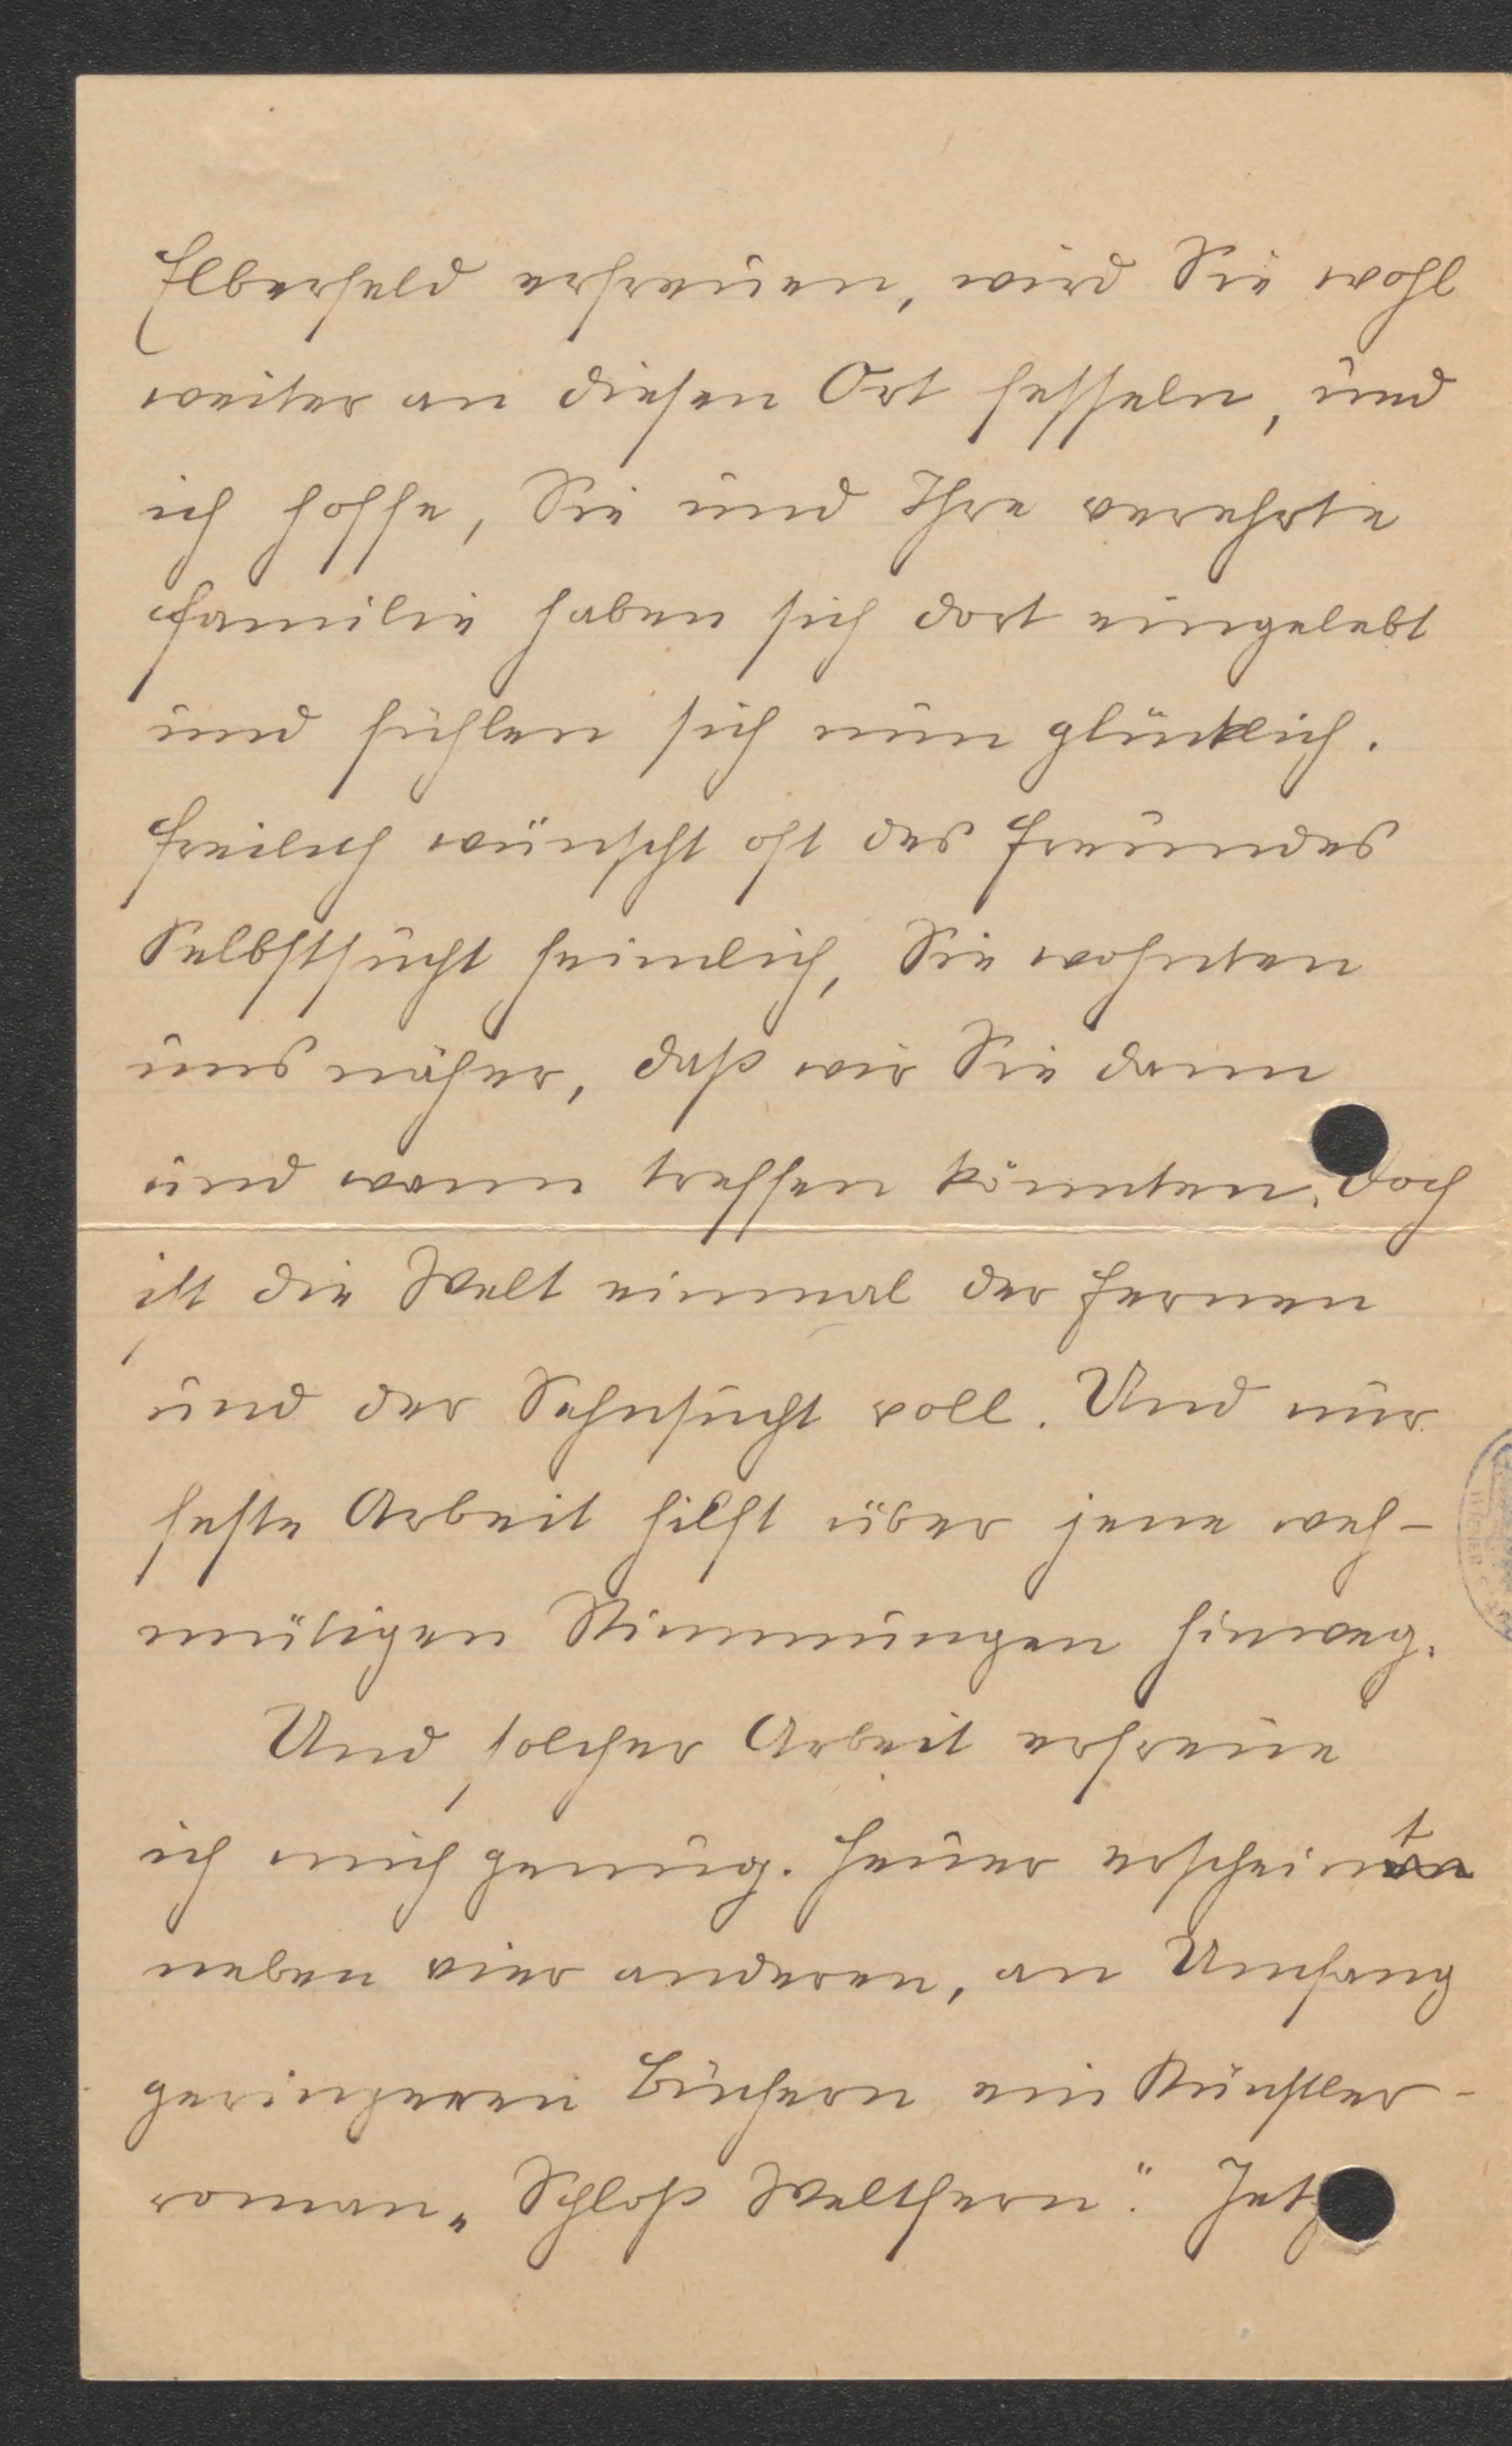 Elberfeld erfreuen, wird Sie wohl
weiter an diesen Ort fesseln, und
ich hoffe, Sie und Ihre verehrte
Familie haben sich dort eingelebt
und fühlen sich nun glücklich.
Freilich wünscht oft des Freundes
Selbstsucht heimlich, Sie wohnten
uns näher, daß wir Sie dann
und wann treffen könnten. Doch
ist die Welt einmal der Fernen
und der Sehnsucht voll. Und nur
feste Arbeit hilft über jene weh-
mütigen Stimmungen hinweg.
Und solcher Arbeit erfreue
ich mich genug. Heuer erscheint
neben vier anderen, an Umfang
geringeren Büchern ein Künstler-
roman „Schloß Weltfern". Jetz